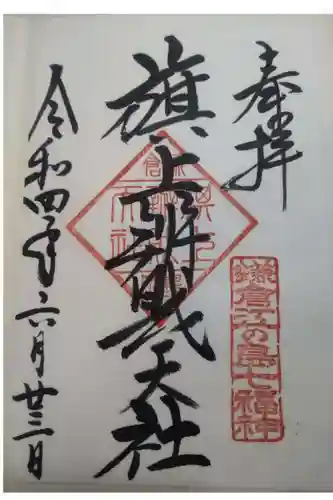 奉拝
旗上辨戝天社
鎌倉江の島七福神
令和四年六月廿三日